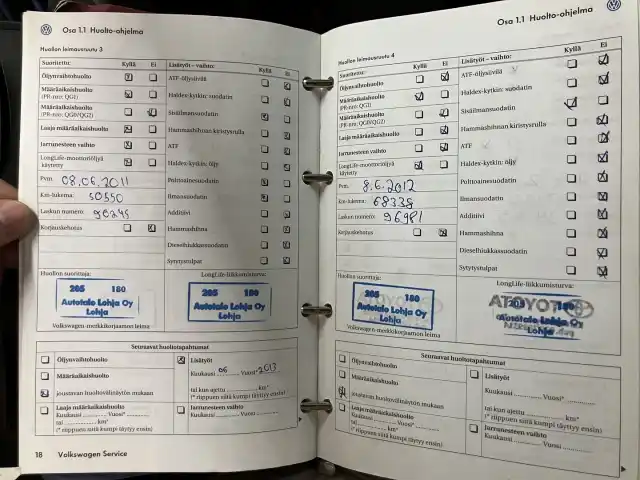 Osa 1.1 Huolto-ohjelma
Huollon leimausruutu 3
Suoritettu: Kyllä Ei
Öljynvaihtohuolto
Määräaikaishuolto
(PR-nro: QG1)
Määräaikaishuolto
(PR-nro: QG0/QG2)
Laaja määräaikaishuolto
Jarrunesteen vaihto
LongLife-moottoriöljyä
käytetty
Pvm. 08.06.2011
Km-lukema: 50550
Laskun numero: 90245
Korjauskehotus
Lisätyöt – vaihto: Kyllä Ei
ATF-öljysiivilä
Haldex-kytkin: suodatin
Sisäilmansuodatin
Hammashihnan kiristysrulla
ATF
Haldex-kytkin: öljy
Polttoainesuodatin
Ilmansuodatin
Additiivi
Hammashihna
Dieselhiukkassuodatin
Sytytystulpat
Huollon suorittaja:
205 180
Autotalo Lohja Oy
Lohja
Volkswagen-merkkikorjaamon leima
LongLife-liikkumisturva:
205 180
Autotalo Lohja Oy
Lohja
Seuraavat huoltotapahtumat
Öljynvaihtohuolto
Määräaikaishuolto
joustavan huoltovälinäytön mukaan
Laaja määräaikaishuolto
Kuukausi Vuosi*
tai km*
(* riippuen siitä kumpi täyttyy ensin)
Lisätyöt
Kuukausi 06 Vuosi* 2013
tai kun ajettu km*
(* riippuen siitä kumpi täyttyy ensin)
Jarrunesteen vaihto
Kuukausi Vuosi
18 Volkswagen Service
Osa 1.1 Huolto-ohjelma
Huollon leimausruutu 4
Suoritettu: Kyllä Ei
Öljynvaihtohuolto
Määräaikaishuolto
(PR-nro: QG1)
Määräaikaishuolto
(PR-nro: QG0/QG2)
Laaja määräaikaishuolto
Jarrunesteen vaihto
LongLife-moottoriöljyä
käytetty
Pvm. 8.6.2012
Km-lukema: 68338
Laskun numero: 96981
Korjauskehotus
Lisätyöt – vaihto: Kyllä Ei
ATF-öljysiivilä
Haldex-kytkin: suodatin
Sisäilmansuodatin
Hammashihnan kiristysrulla
ATF
Haldex-kytkin: öljy
Polttoainesuodatin
Ilmansuodatin
Additiivi
Hammashihna
Dieselhiukkassuodatin
Sytytystulpat
Huollon suorittaja:
205 180
Autotalo Lohja Oy
Lohja
Volkswagen-merkkikorjaamon leima
LongLife-liikkumisturva:
205 180
Autotalo Lohja Oy
Lohja
Seuraavat huoltotapahtumat
Öljynvaihtohuolto
Määräaikaishuolto
joustavan huoltovälinäytön mukaan
Laaja määräaikaishuolto
Kuukausi Vuosi*
tai km*
(* riippuen siitä kumpi täyttyy ensin)
Lisätyöt
Kuukausi Vuosi*
tai kun ajettu km*
(* riippuen siitä kumpi täyttyy ensin)
Jarrunesteen vaihto
Kuukausi Vuosi